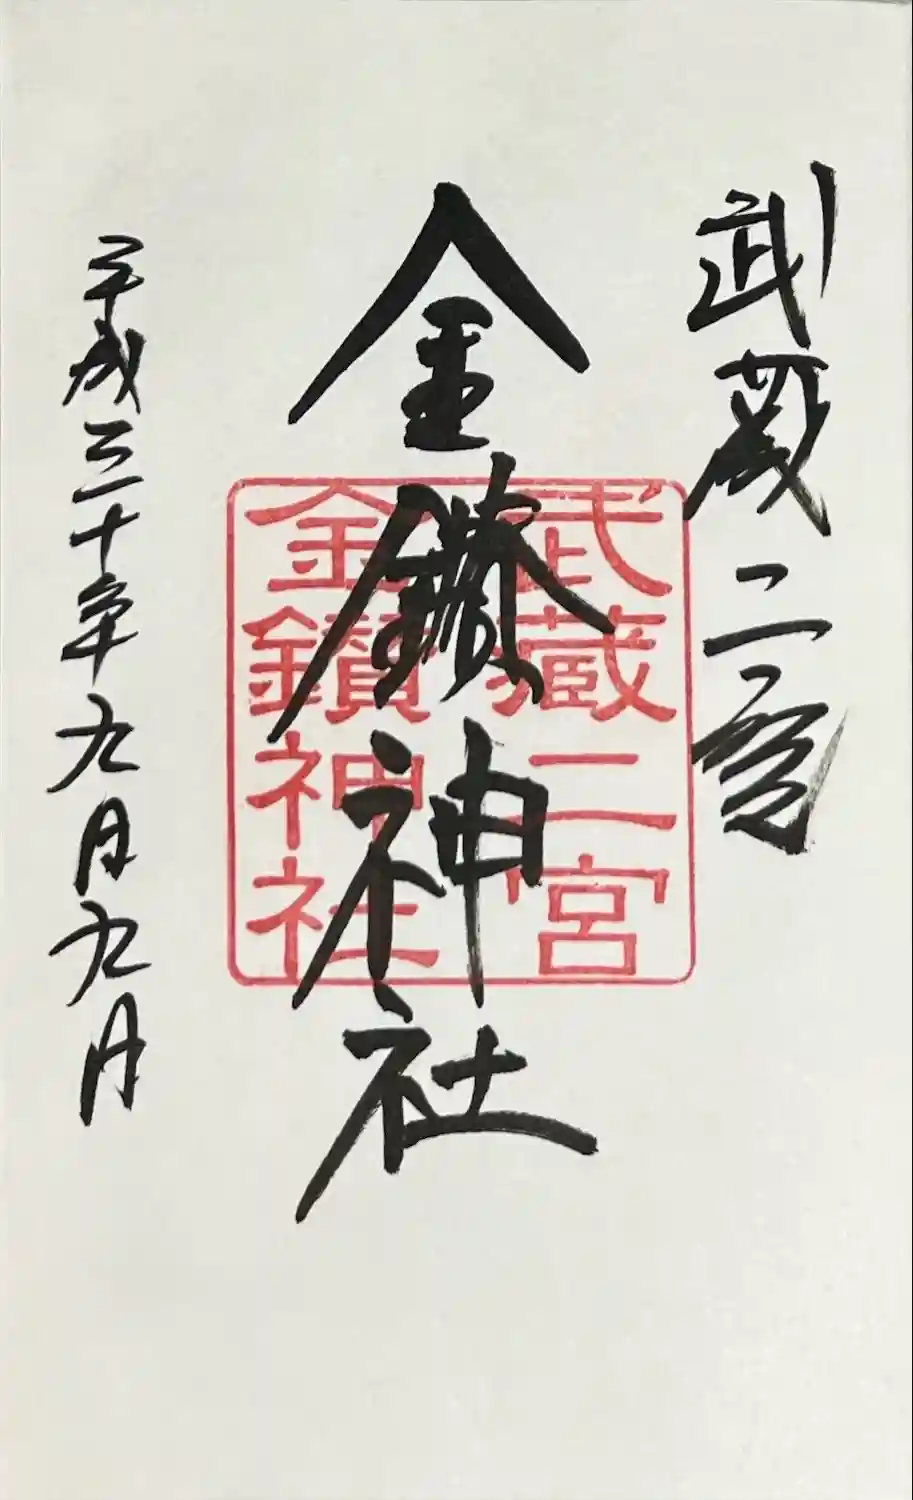 武蔵二宮
金鑚神社
平成三十年九月九月
武蔵二宮
金鑚神社